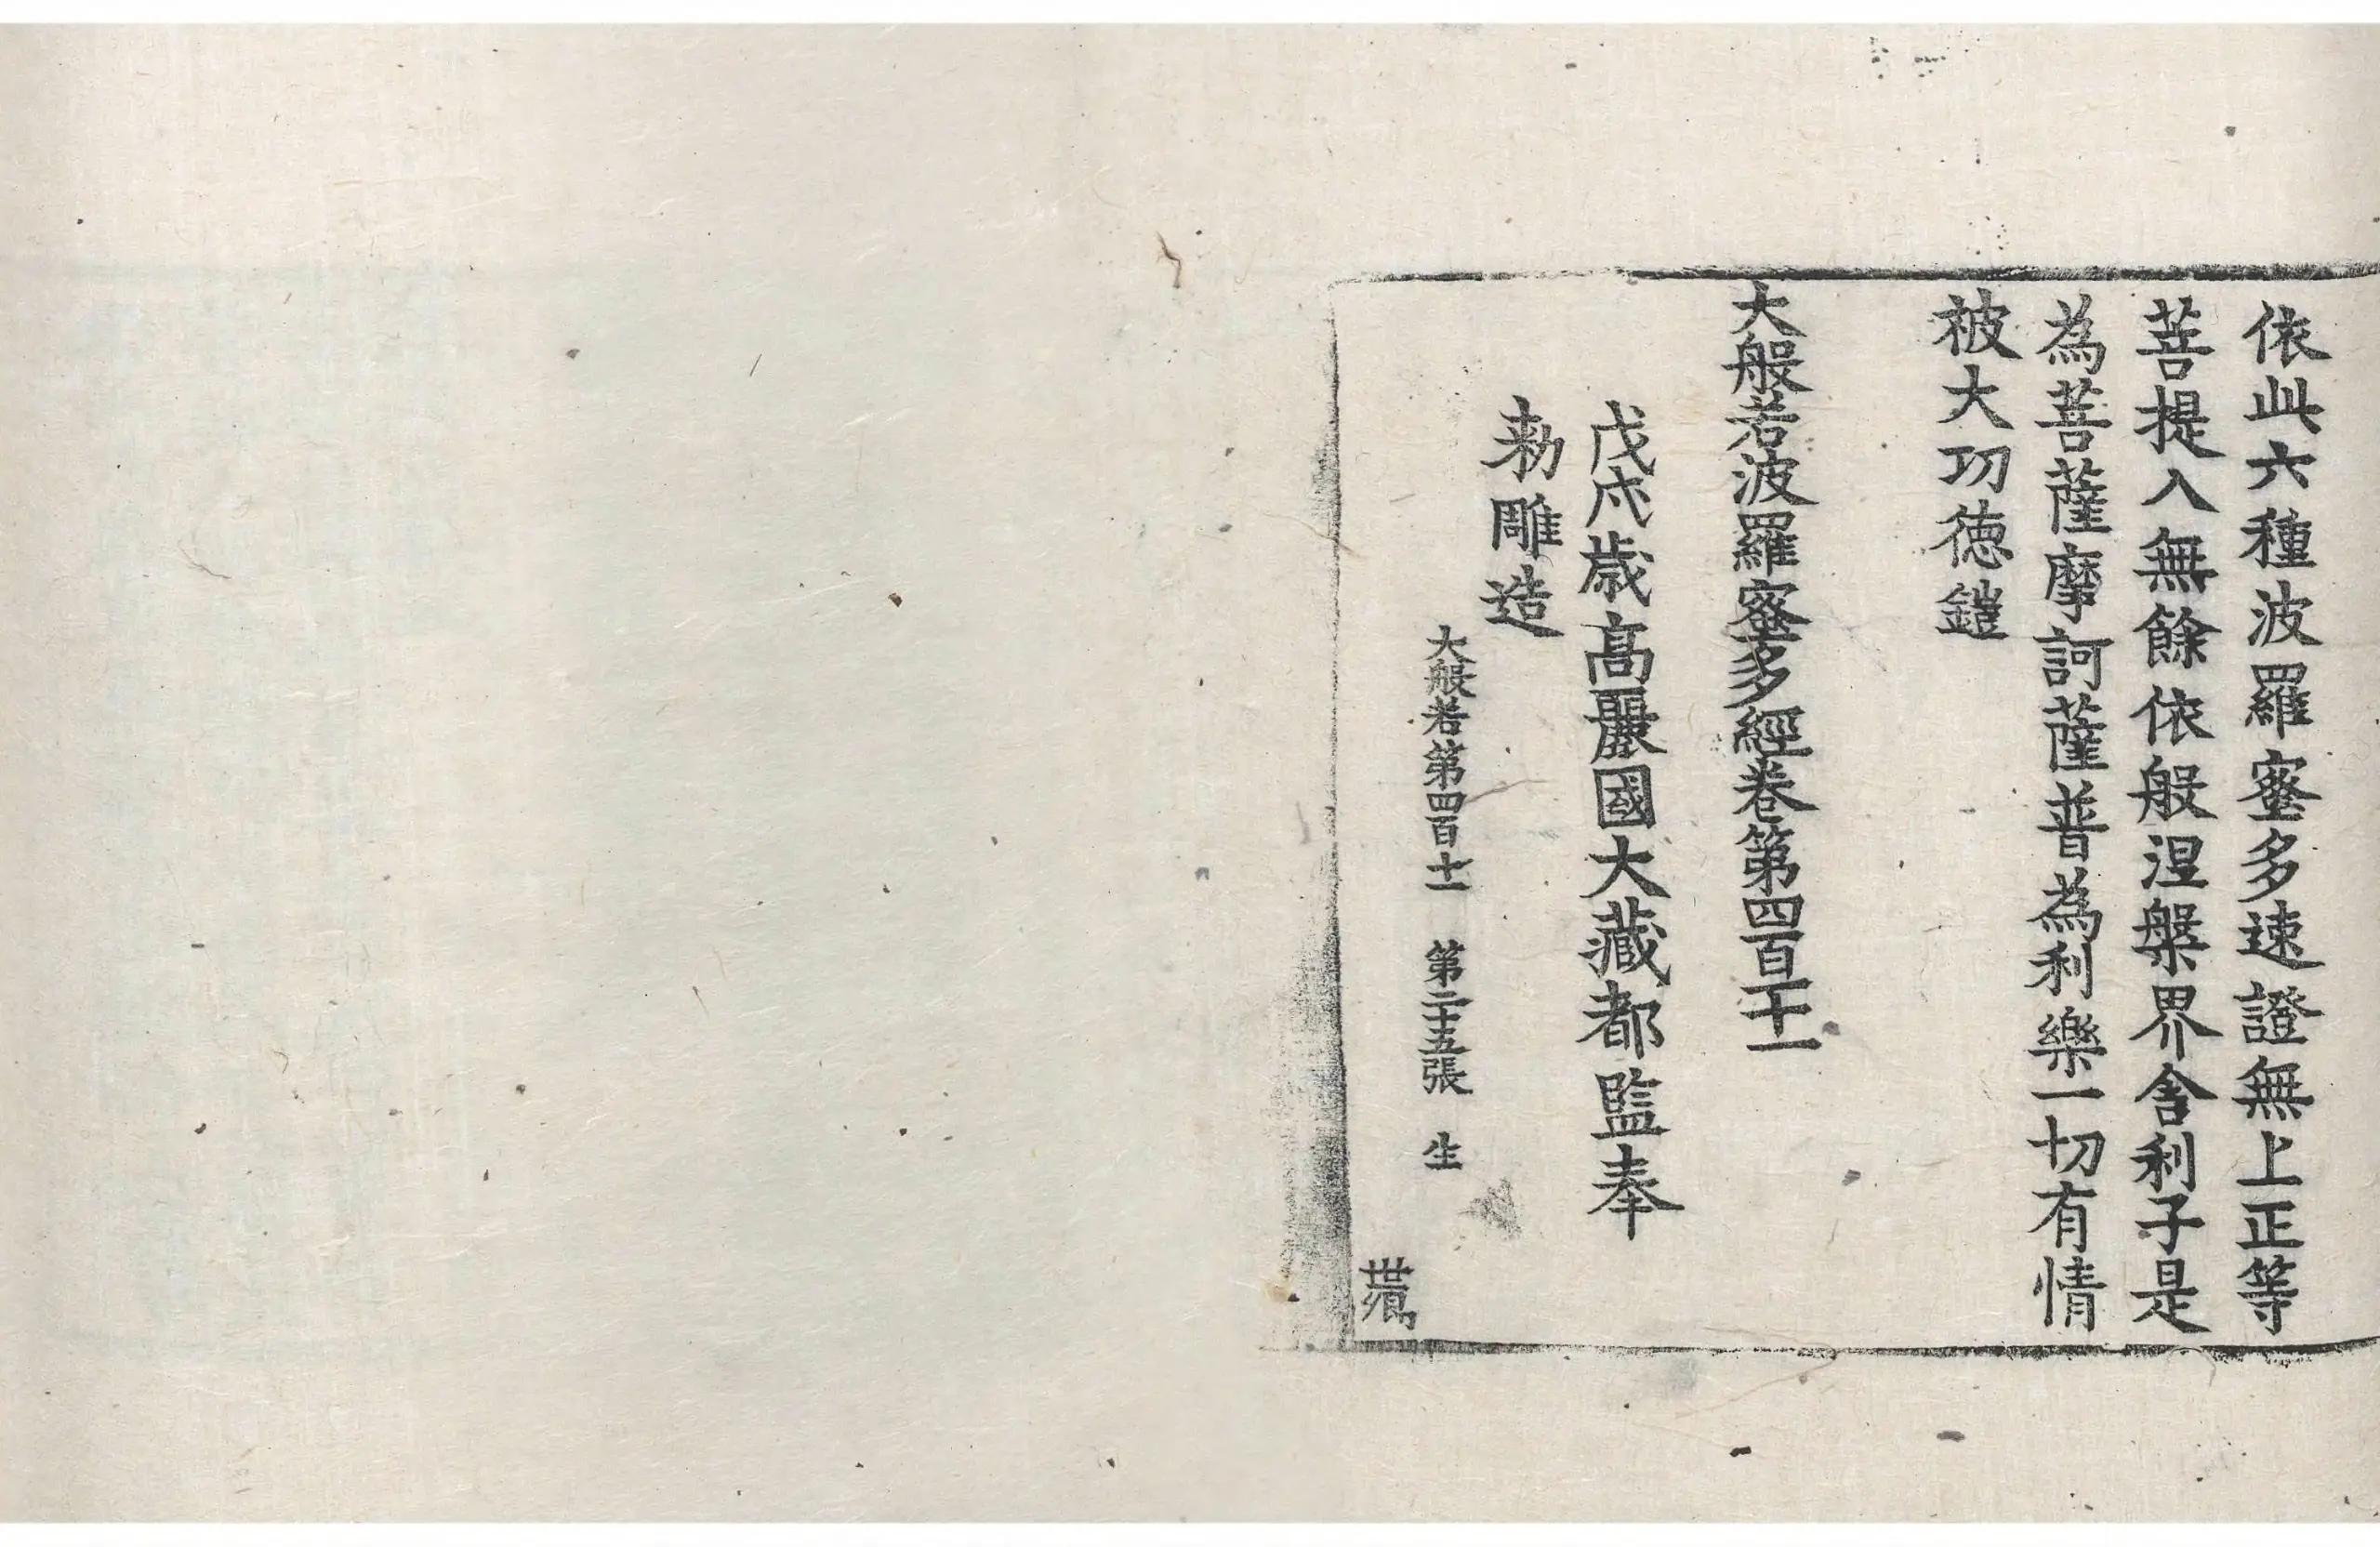 依此六種波羅蜜多速證無上正等
菩提入無餘依般涅槃界舍利子是
為菩薩摩訶薩普為利樂一切有情
被大功德鎧
大般若波羅蜜多經卷第四百十一
戊戌歲高麗國大藏都監奉
勅雕造
大般若第四百十一 第二十五張 生